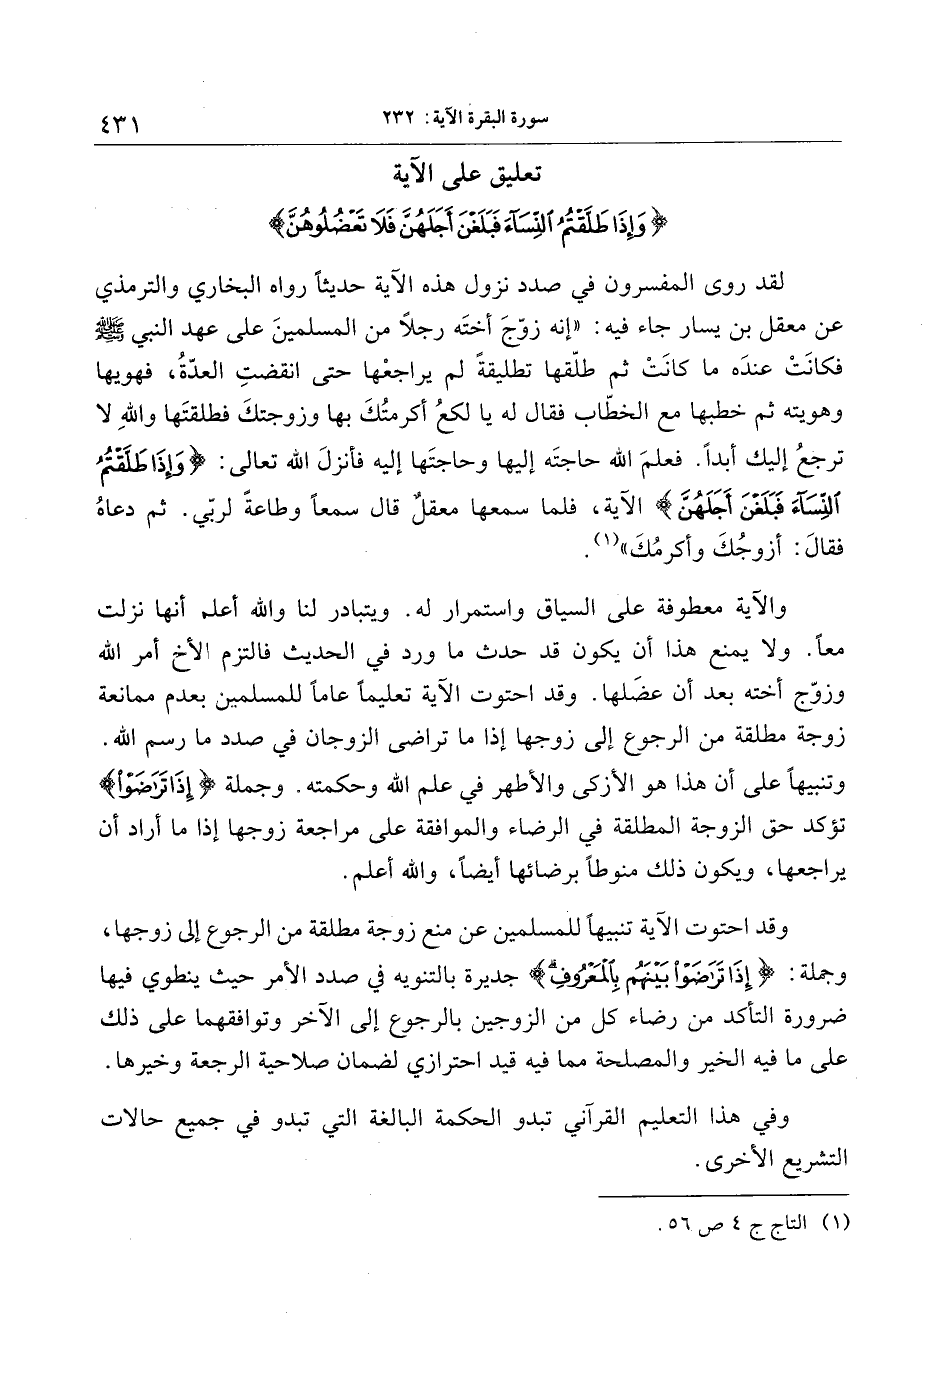 سورة البقرة الآية: ٢٣٢
٤٣١
تعليق على الآية
﴿وَإِذَا طَلَّقْتُمُ ٱلنِّسَآءَ فَبَلَغْنَ أَجَلَهُنَّ فَلَا تَعْضُلُوهُنَّ﴾
لقد روى المفسرون في صدد نزول هذه الآية حديثاً رواه البخاري والترمذي
عن معقل بن يسار جاء فيه: «إنه زوّجَ أختَه رجلاً من المسلمينَ على عهد النبي ﷺ
فكانَتْ عندَه ما كانَتْ ثم طلّقها تطليقةً لم يراجعْها حتى انقضتِ العدّةُ، فهويها
وهويته ثم خطبها مع الخطّاب فقال له يا لكعُ أكرمتُكَ بها وزوجتكَ فطلقتَها واللهِ لا
ترجعُ إليك أبداً. فعلمَ الله حاجتَه إليها وحاجتَها إليه فأنزلَ الله تعالى: ﴿وَإِذَا طَلَّقْتُمُ
ٱلنِّسَآءَ فَبَلَغْنَ أَجَلَهُنَّ﴾ الآية، فلما سمعها معقلٌ قال سمعاً وطاعةً لربّي. ثم دعاهُ
فقالَ: أزوجُكَ وأكرمُكَ»(١).
والآية معطوفة على السياق واستمرار له. ويتبادر لنا والله أعلم أنها نزلت
معاً. ولا يمنع هذا أن يكون قد حدث ما ورد في الحديث فالتزم الأخ أمر الله
وزوّج أخته بعد أن عضَلها. وقد احتوت الآية تعليماً عاماً للمسلمين بعدم ممانعة
زوجة مطلقة من الرجوع إلى زوجها إذا ما تراضى الزوجان في صدد ما رسم الله.
وتنبيهاً على أن هذا هو الأزكى والأطهر في علم الله وحكمته. وجملة ﴿إِذَا تَرَٰضَوْا۟﴾
تؤكد حق الزوجة المطلقة في الرضاء والموافقة على مراجعة زوجها إذا ما أراد أن
يراجعها، ويكون ذلك منوطاً برضائها أيضاً، والله أعلم.
وقد احتوت الآية تنبيهاً للمسلمين عن منع زوجة مطلقة من الرجوع إلى زوجها،
وجملة: ﴿إِذَا تَرَٰضَوْا۟ بَيْنَهُم بِٱلْمَعْرُوفِ ۗ﴾ جديرة بالتنويه في صدد الأمر حيث ينطوي فيها
ضرورة التأكد من رضاء كل من الزوجين بالرجوع إلى الآخر وتوافقهما على ذلك
على ما فيه الخير والمصلحة مما فيه قيد احترازي لضمان صلاحية الرجعة وخيرها.
وفي هذا التعليم القرآني تبدو الحكمة البالغة التي تبدو في جميع حالات
التشريع الأخرى.
(١) التاج ج ٤ ص ٥٦.